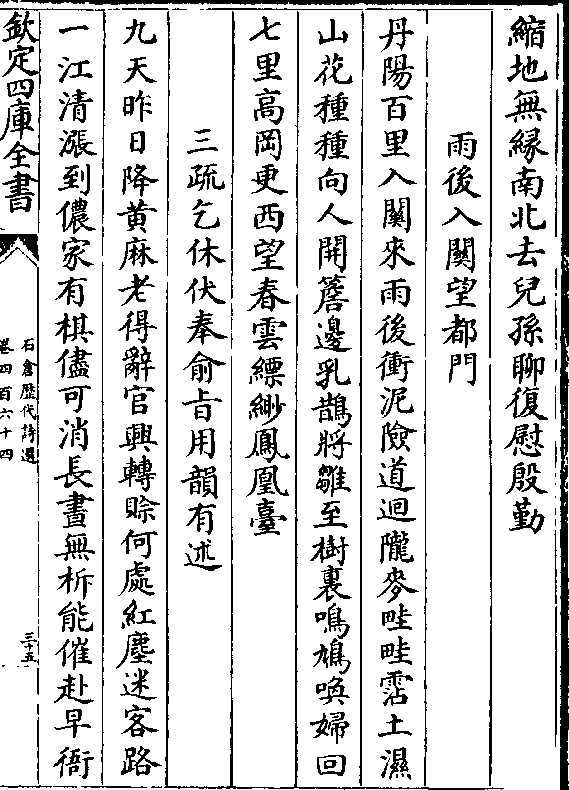 縮地無緣南北去兒孫聊復慰殷勤
雨後入關望都門
丹陽百里入關來雨後衝泥險道迴隴麥畦畦霑土濕
山花種種向人開簷邊乳鵲將雛至樹裏鳴鳩喚婦回
七里高岡更西望春雲縹緲鳳凰臺
三疏乞休伏奉俞旨用韻有述
九天昨日降黄麻老得辭官興轉賒何處紅塵迷客路
一江清漲到儂家有棋儘可消長晝無柝能催赴早衙
欽定四庫全書
石倉歷代詩選
卷四百六十四
三十五